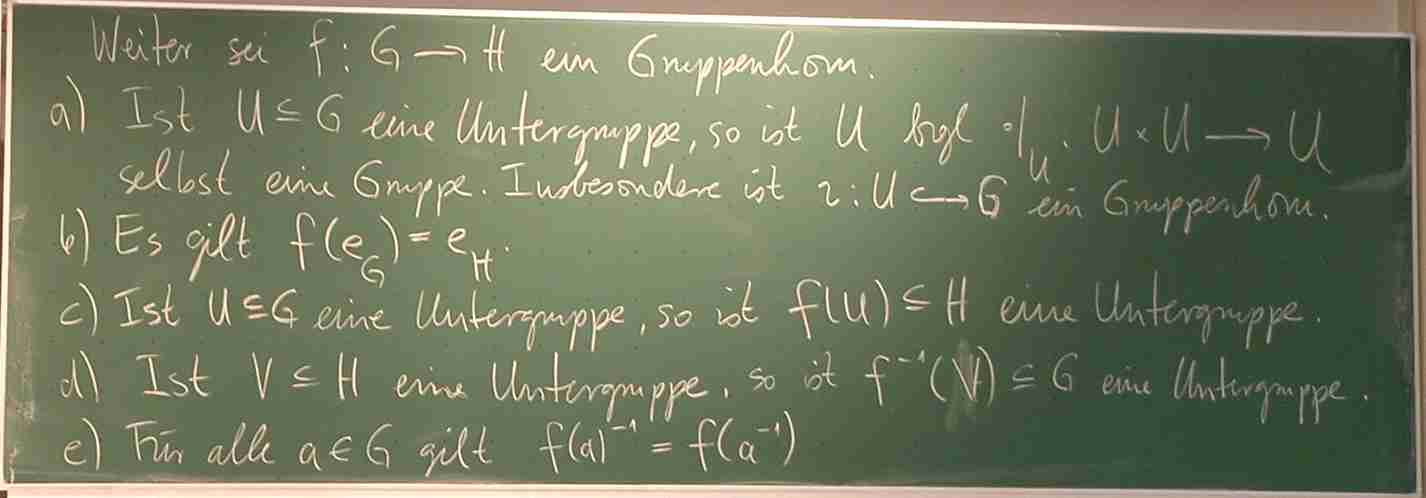 Weiter sei f: G → H ein Gruppenhom.
a) Ist U ⊆ G eine Untergruppe, so ist U bzgl ·|_U : U × U → U
selbst eine Gruppe. Insbesondere ist ι: U ↪ G ein Gruppenhom.
b) Es gilt f(e_G) = e_H.
c) Ist U ⊆ G eine Untergruppe, so ist f(U) ⊆ H eine Untergruppe.
d) Ist V ⊆ H eine Untergruppe, so ist f⁻¹(V) ⊆ G eine Untergruppe.
e) Für alle a ∈ G gilt f(a)⁻¹ = f(a⁻¹)